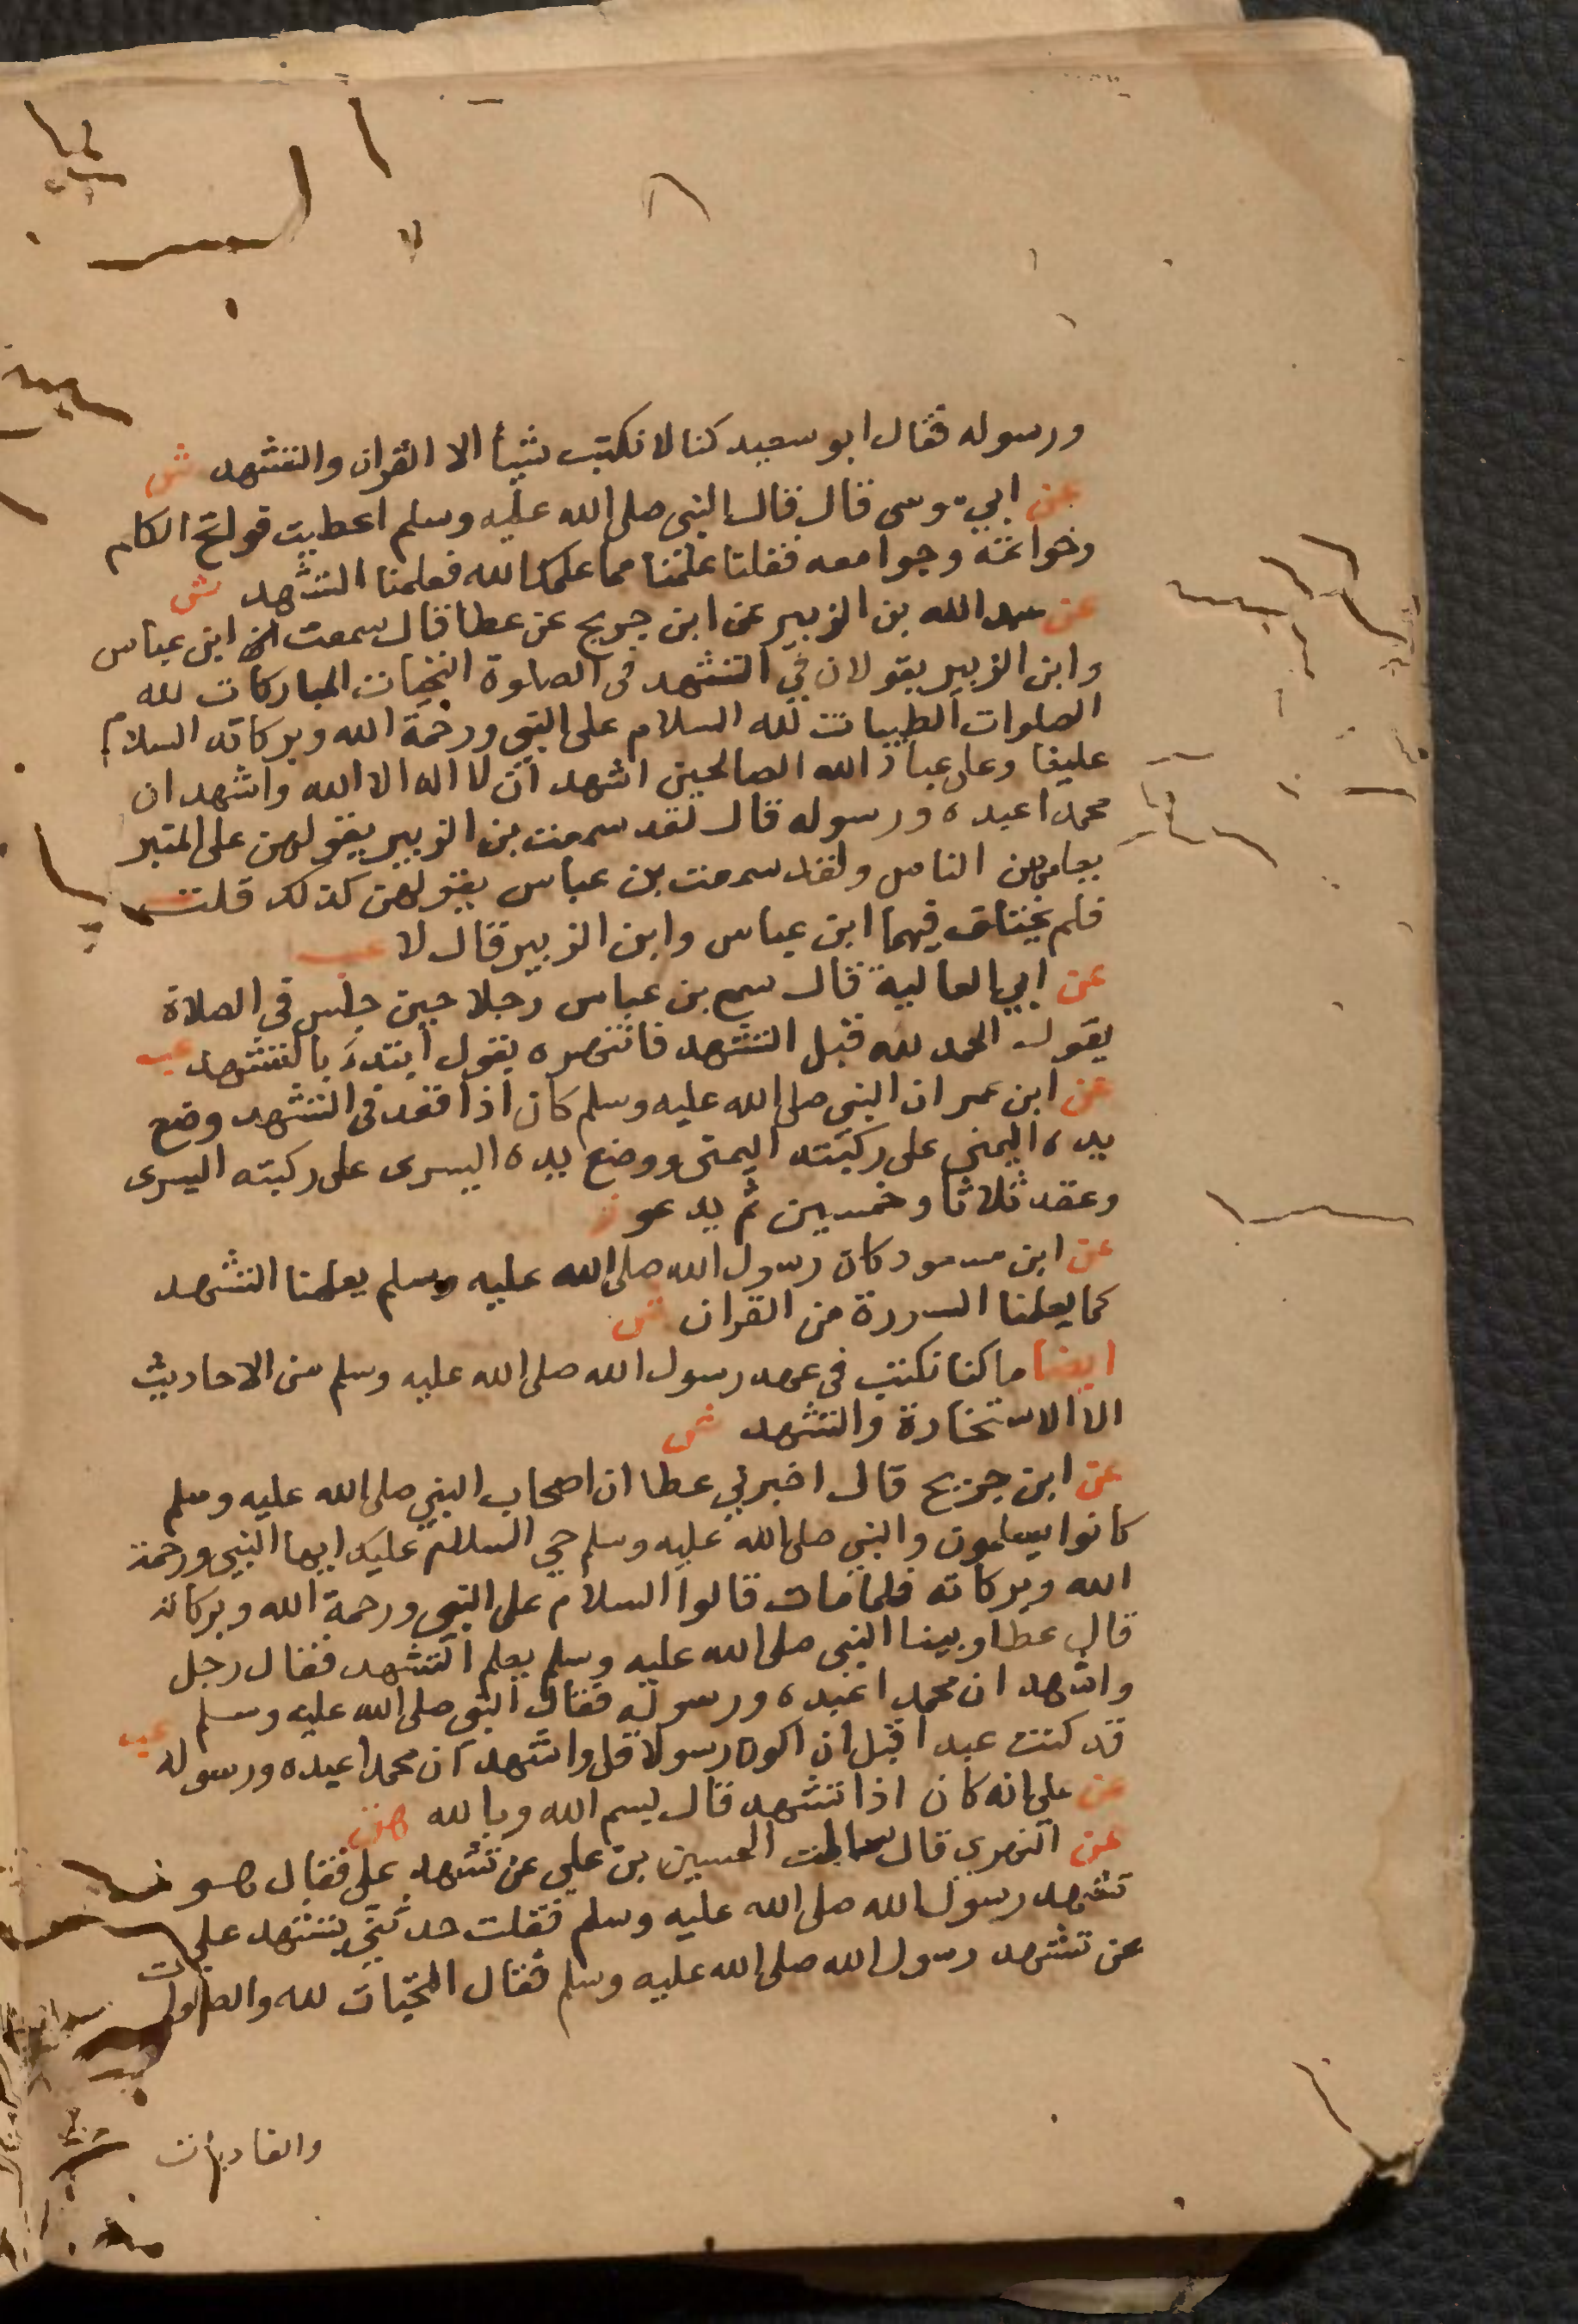 ورسوله فقال ابو سعيد كنا لا نكتب شيأ الا القران والتشهد ش
عن ابي موسى قال قال النبى صلى الله عليه وسلم اعطيت فواتح الكلام
وخواتمه وجوامعه فقلنا علمنا مما علمك الله فعلمنا التشهد ش
عن عبد الله بن الزبير عن ابن جريج عن عطا قال سمعت ابن عباس
وابن الزبير يقولان في التشهد فى الصلوة التحيات المباركات لله
الصلوات الطيبات لله السلام على النبي ورحمة الله وبركاته السلام
علينا وعلى عباد الله الصالحين اشهد ان لا اله الا الله واشهد ان
محمدا عبده ورسوله قال لقد سمعت بن الزبير يقولهن على المنبر
يعلمهن الناس ولقد سمعت بن عباس يقولهن كذلك قلت
فلم يختلف فيها ابن عباس وابن الزبير قال لا عب
عن ابي العالية قال سمع بن عباس رجلا حين جلس في الصلاة
يقول الحمد لله قبل التشهد فانتهره يقول ابتدء بالتشهد عب
عن ابن عمر ان النبي صلى الله عليه وسلم كان اذا قعد فى التشهد وضع
يده اليمنى على ركبته اليمنى ووضع يده اليسرى على ركبته اليسرى
وعقد ثلاثا وخمسين ثم يدعو
عن ابن مسعود كان رسول الله صلى الله عليه وسلم يعلمنا التشهد
كما يعلمنا السورة من القران ش
ايضا ما كنا نكتب فى عهد رسول الله صلى الله عليه وسلم من الاحاديث
الا الاستخارة والتشهد ش
عن ابن جريج قال اخبرني عطا ان اصحاب النبي صلى الله عليه وسلم
كانوا يسلمون والنبي صلى الله عليه وسلم حي السلام عليك ايها النبي ورحمة
الله وبركاته فلما مات قالوا السلام على النبي ورحمة الله وبركاته
قال عطا وبينا النبى صلى الله عليه وسلم يعلم التشهد فقال رجل
واشهد ان محمدا عبده ورسوله فقال النبي صلى الله عليه وسلم
قد كنت عبدا قبل ان اكون رسولا قل واشهد ان محمدا عبده ورسوله عب
عن علي انه كان اذا تشهد قال بسم الله وبالله هق
عن الزهري قال سالت الحسين بن علي عن تشهد على فقال هو
تشهد رسول الله صلى الله عليه وسلم فقلت حدثني بتشهد علي
عن تشهد رسول الله صلى الله عليه وسلم فقال التحيات لله والصلوات
والغاديات